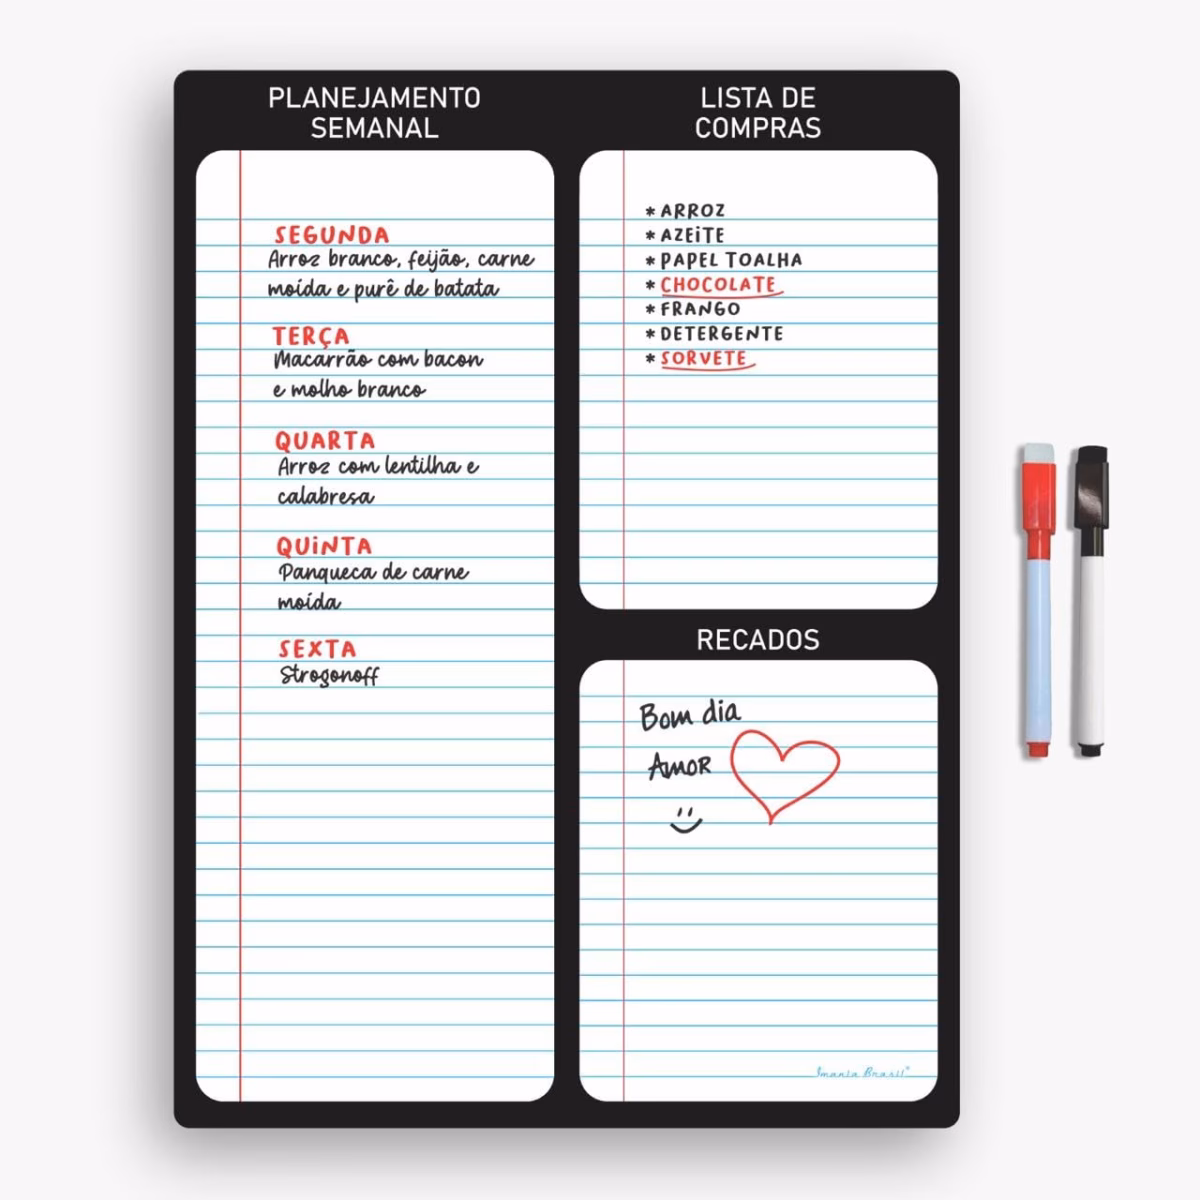 PLANEJAMENTO
SEMANAL
SEGUNDA
Arroz branco, feijão, carne
moída e purê de batata
TERÇA
Macarrão com bacon
e molho branco
QUARTA
Arroz com lentilha e
calabresa
QUiNTA
Panqueca de carne
moída
SEXTA
Strogonoff
LISTA DE
COMPRAS
* ARROZ
* AZEiTE
* PAPEL TOALHA
* CHOCOLATE
* FRANGO
* DETERGENTE
* SORVETE
RECADOS
Bom dia
AmoR
Imania Brasil®